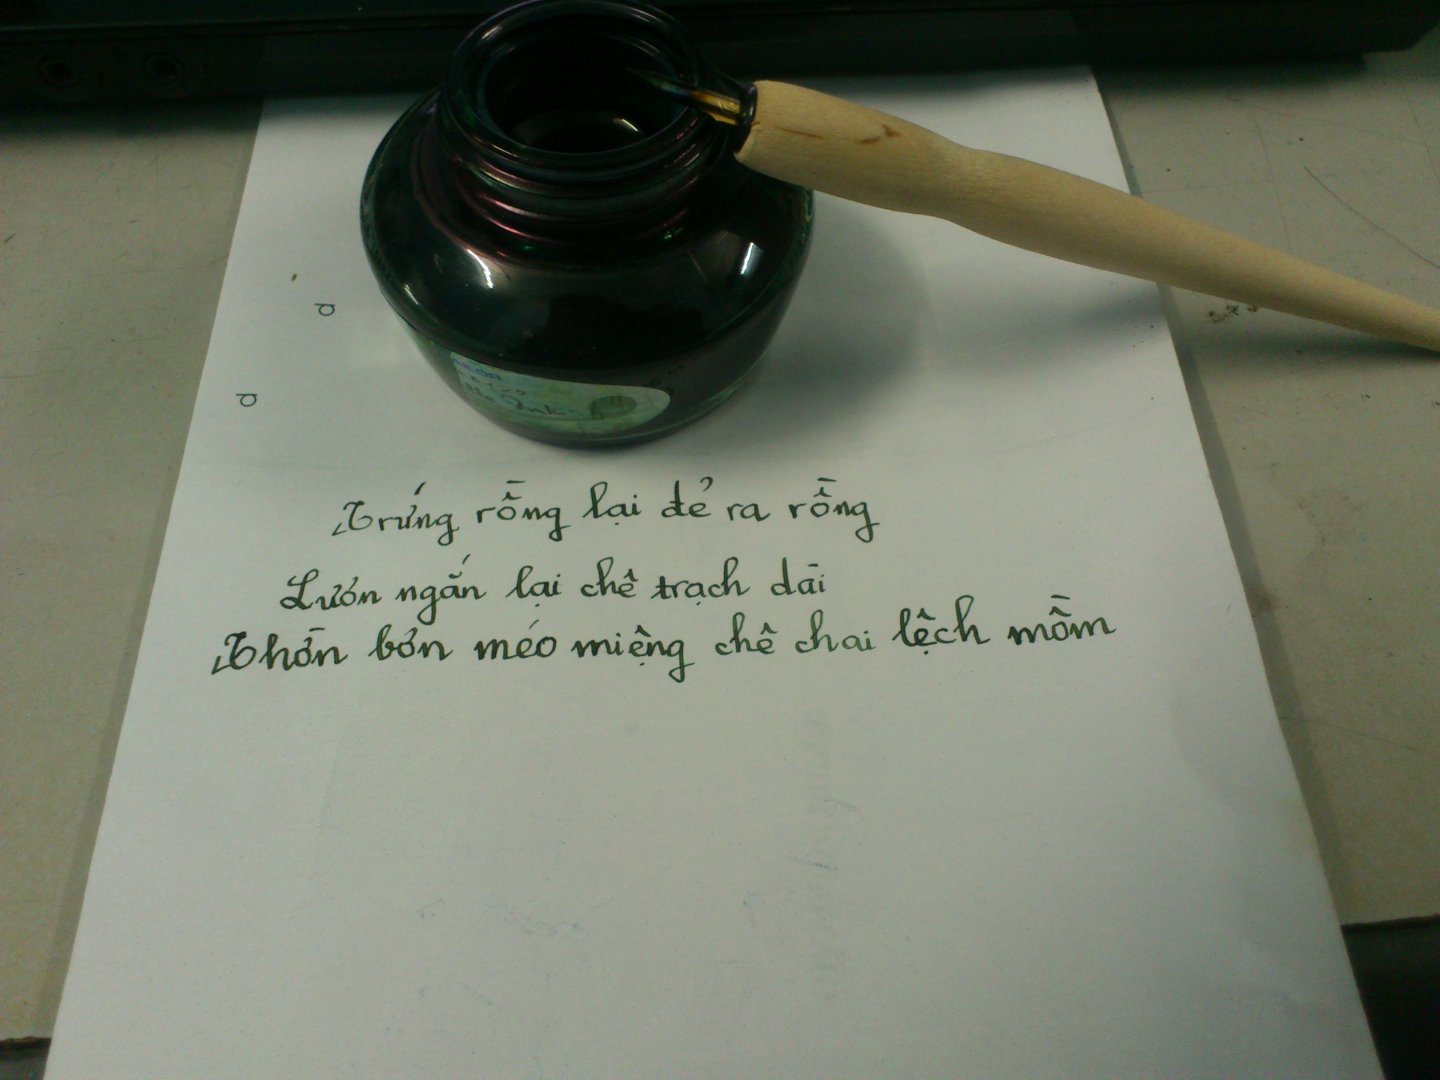 d
d
Ink
Trứng rồng lại đẻ ra rồng
Lươn ngắn lại chê trạch dài
Thờn bơn méo miệng chê chai lệch mồm